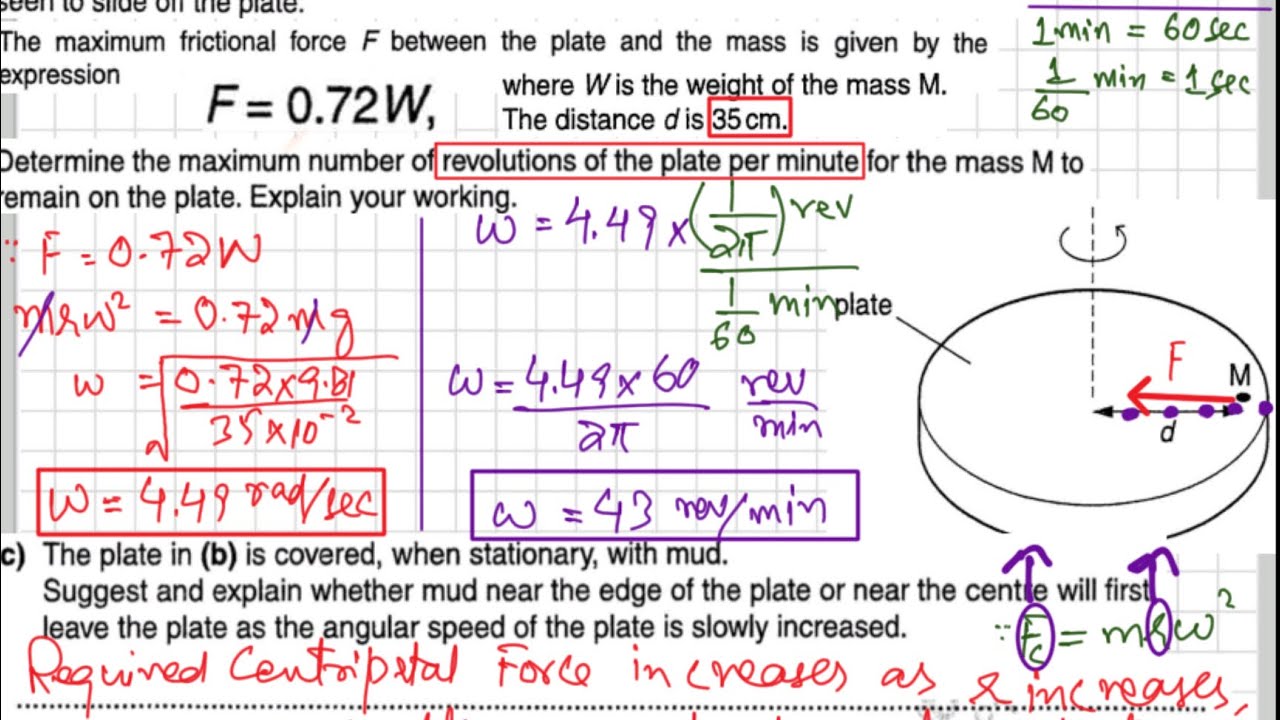 seen to slide off the plate.
The maximum frictional force F between the plate and the mass is given by the
expression
F = 0.72W,
where W is the weight of the mass M.
The distance d is 35 cm.
1 min = 60 sec
1/60 min = 1 sec
Determine the maximum number of revolutions of the plate per minute for the mass M to
remain on the plate. Explain your working.
∵ F = 0.72W
mrω² = 0.72mg
ω = √(0.72×9.81 / 35×10⁻²)
ω = 4.49 rad/sec
ω = 4.49 × (1/2π) rev
1/60 min
ω = 4.49×60 / 2π rev/min
ω = 43 rev/min
plate
F
M
d
c) The plate in (b) is covered, when stationary, with mud.
Suggest and explain whether mud near the edge of the plate or near the centre will first
leave the plate as the angular speed of the plate is slowly increased.
∵ Fc = mrω²
Required Centripetal Force increases as r increases,